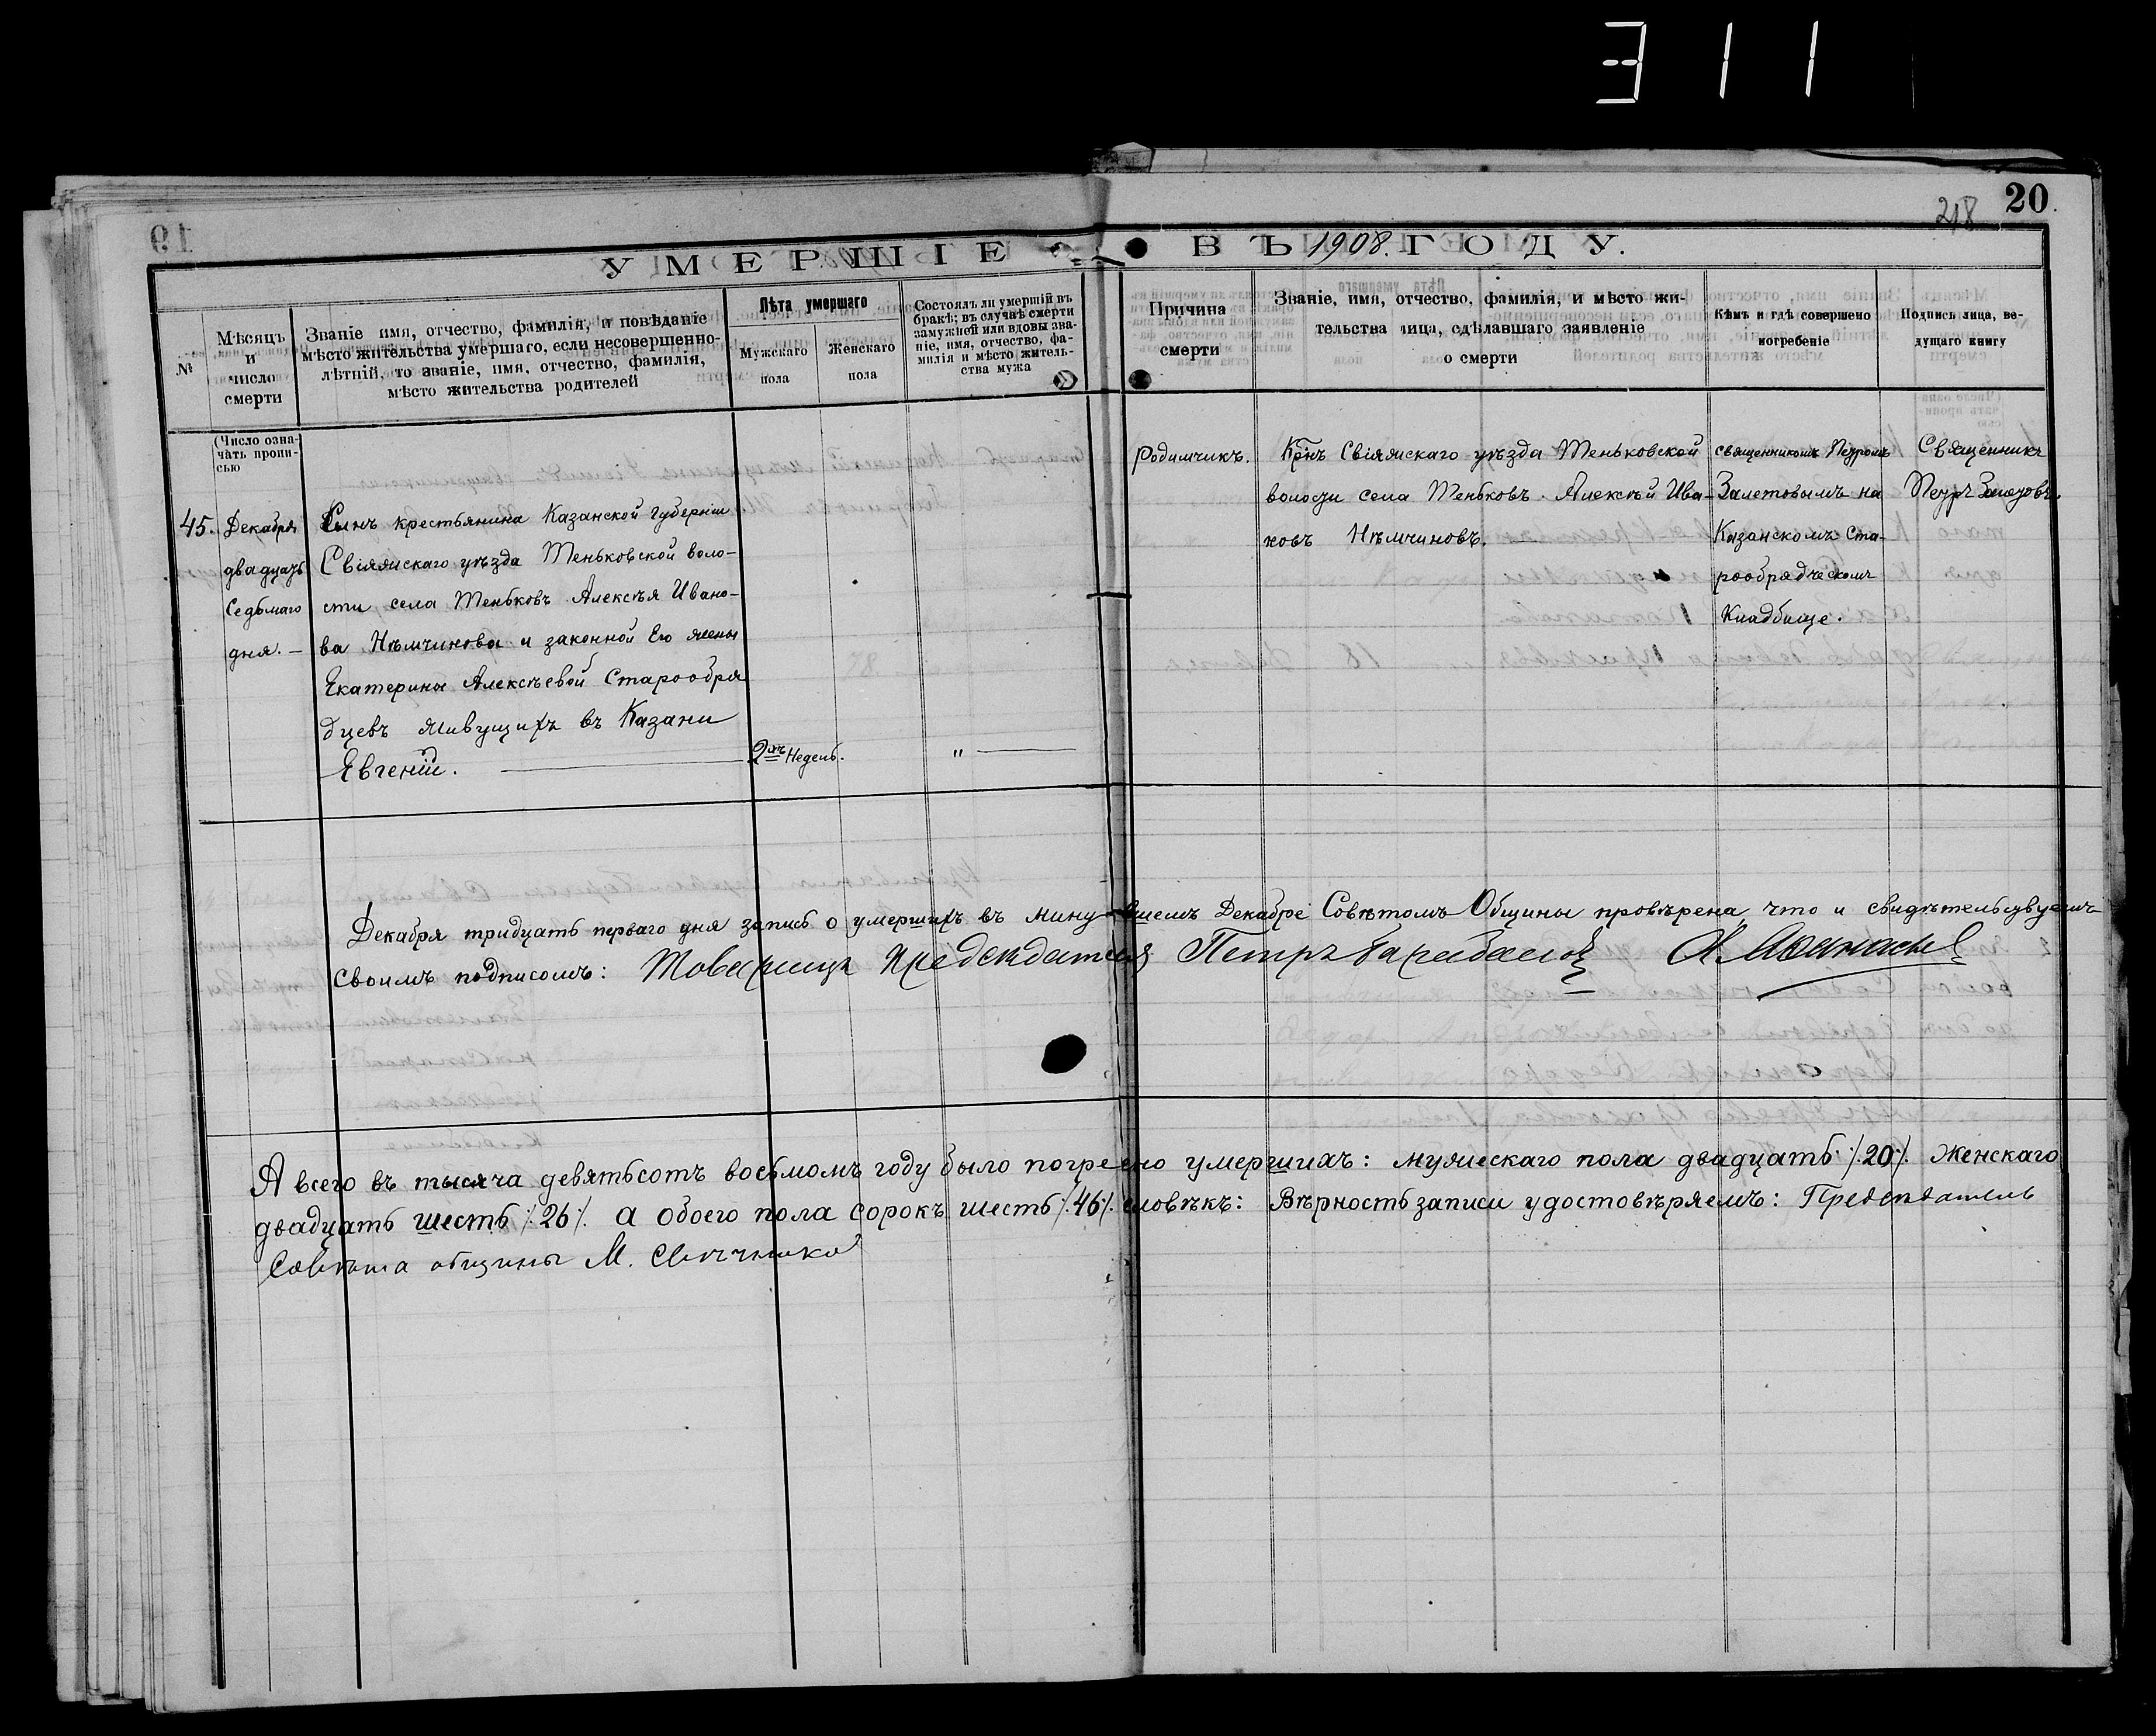 311
218 20
УМЕРШІЕ ВЪ 1908. ГОДУ.
№
Мѣсяцъ
и
число
смерти
Званіе имя, отчество, фамилія, и повѣданіе
мѣсто жительства умершаго, если несовершенно-
лѣтній, то званіе, имя, отчество, фамилія,
мѣсто жительства родителей
Лѣта умершаго
Мужскаго
пола
Женскаго
пола
Состоялъ ли умершій въ
бракѣ; въ случаѣ смерти
замужней или вдовы зва-
ніе, имя, отчество, фа-
милія и мѣсто житель-
ства мужа
Причина
смерти
Званіе, имя, отчество, фамилія, и мѣсто жи-
тельства лица, сдѣлавшаго заявленіе
о смерти
Кѣмъ и гдѣ совершено
погребеніе
Подпись лица, ве-
дущаго книгу
(Число озна-
чать пропи-
сью
45.
Декабря
двадцать
Седьмаго
дня. —
Сынъ крестьянина Казанской губерніи
Свіяжскаго уѣзда Теньковской воло-
сти села Теньковъ Алексѣя Ивано-
ва Нѣмчинова и законной Его жены
Екатерины Алексѣевой Старообря
дцевъ живущихъ въ Казани
Евгеній.
2хъ Недель.
"
Родимчикъ.
Крнъ Свіяжскаго уѣзда Теньковской
волости села Теньковъ. Алексѣй Ива-
новъ Нѣмчиновъ. —
священникомъ Петромъ
Залетовымъ на
Казанскомъ Ста-
рообрядческомъ
Кладбище.
Священникъ
Петръ Залетовъ.
Декабря тридцать перваго дня запись о умершихъ въ минувшемъ Декабре Совѣтомъ Общины провѣрена, что и свидѣтельствуемъ
своимъ подписомъ: Товарищъ Председателя Петръ Барабанов А. Афанасьев
А всего въ тысяча девятьсотъ восьмомъ году было погребено умершихъ: мужескаго пола двадцать ⁒20⁒ Женскаго
двадцать шесть ⁒26⁒ а обоего пола сорокъ шесть ⁒46⁒ человѣкъ: Вѣрность записи удостовѣряемъ: Председатель
Совѣта общины М.